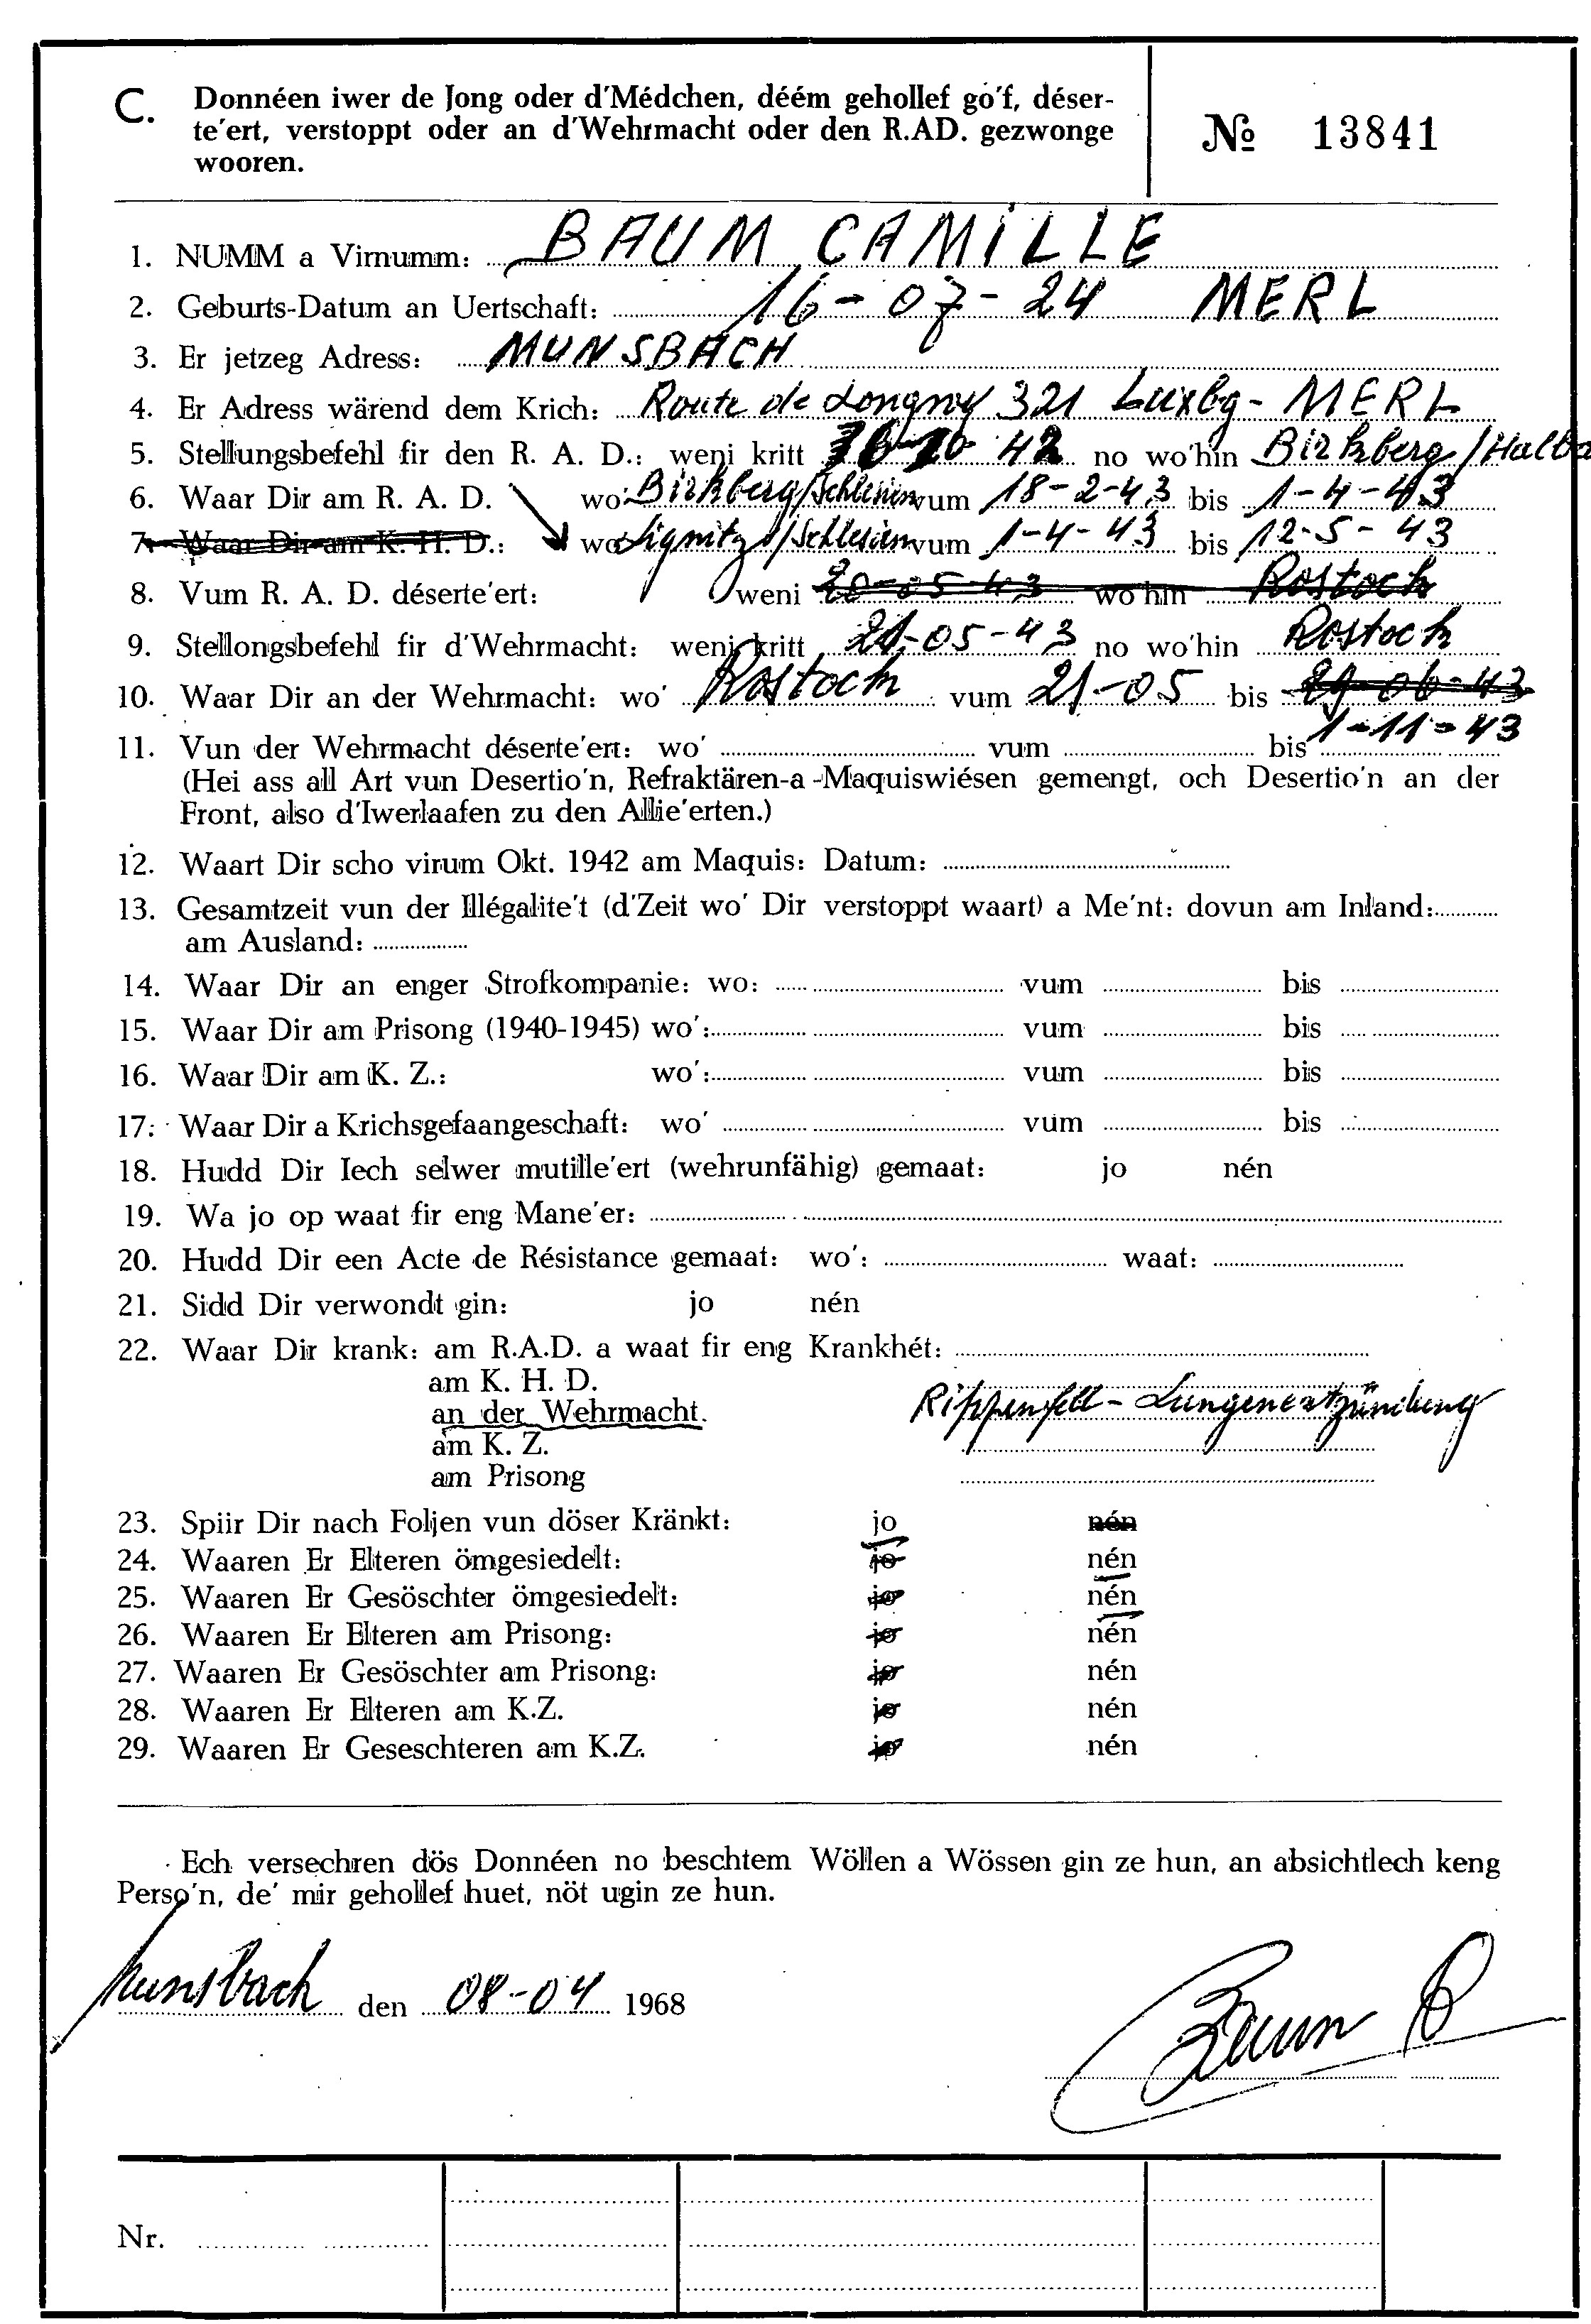 C. Donnéen iwer de Jong oder d'Médchen, déém gehollef go'f, déser-
te'ert, verstoppt oder an d'Wehrmacht oder den R.AD. gezwonge
wooren.
№ 13841
1. NUMM a Virnumm: BAUM CAMILLE
2. Geburts-Datum an Uertschaft: 16-07-24 MERL
3. Er jetzeg Adress: MUNSBACH
4. Er Adress wärend dem Krich: Route de Longwy 321 Luxbg - MERL
5. Stellungsbefehl fir den R. A. D.: weni kritt 42 no wo'hin Birkberg/Halba
6. Waar Dir am R. A. D. wo' Birkberg/Schlesien vum 18-2-43 bis 1-4-43
7. Waar Dir am K. H. D.: wo' Lignitz/Schlesien vum 1-4-43 bis 12-5-43
8. Vum R. A. D. déserte'ert: weni 20-05-43 wo'hin Rostock
9. Stellongsbefehl fir d'Wehrmacht: weni kritt 21-05-43 no wo'hin Rostock
10. Waar Dir an der Wehrmacht: wo' Rostock vum 21-05 bis 29-06-43
1-11-43
11. Vun der Wehrmacht déserte'ert: wo' vum bis
(Hei ass all Art vun Desertio'n, Refraktären-a-Maquiswiésen gemengt, och Desertio'n an der
Front, also d'Iwerlaafen zu den Allie'erten.)
12. Waart Dir scho virum Okt. 1942 am Maquis: Datum:
13. Gesamtzeit vun der Illégalite't (d'Zeit wo' Dir verstoppt waart) a Me'nt: dovun am Inland:
am Ausland:
14. Waar Dir an enger Strofkompanie: wo: vum bis
15. Waar Dir am Prisong (1940-1945) wo': vum bis
16. Waar Dir am K. Z.: wo': vum bis
17. Waar Dir a Krichsgefaangeschaft: wo' vum bis
18. Hudd Dir Iech selwer mutille'ert (wehrunfähig) gemaat: jo nén
19. Wa jo op waat fir eng Mane'er:
20. Hudd Dir een Acte de Résistance gemaat: wo': waat:
21. Sidd Dir verwondt gin: jo nén
22. Waar Dir krank: am R.A.D. a waat fir eng Krankhét:
am K. H. D.
an der Wehrmacht. Rippenfell-Lungenentzündung
am K. Z.
am Prisong
23. Spiir Dir nach Foljen vun döser Kränkt: jo nén
24. Waaren Er Elteren ömgesiedelt: jo nén
25. Waaren Er Gesöschter ömgesiedelt: jo nén
26. Waaren Er Elteren am Prisong: jo nén
27. Waaren Er Gesöschter am Prisong: jo nén
28. Waaren Er Elteren am K.Z. jo nén
29. Waaren Er Geseschteren am K.Z. jo nén
Ech versechren dös Donnéen no beschtem Wöllen a Wössen gin ze hun, an absichtlech keng
Perso'n, de' mir gehollef huet, nöt ugin ze hun.
Munsbach den 08-04 1968
Baum
Nr.